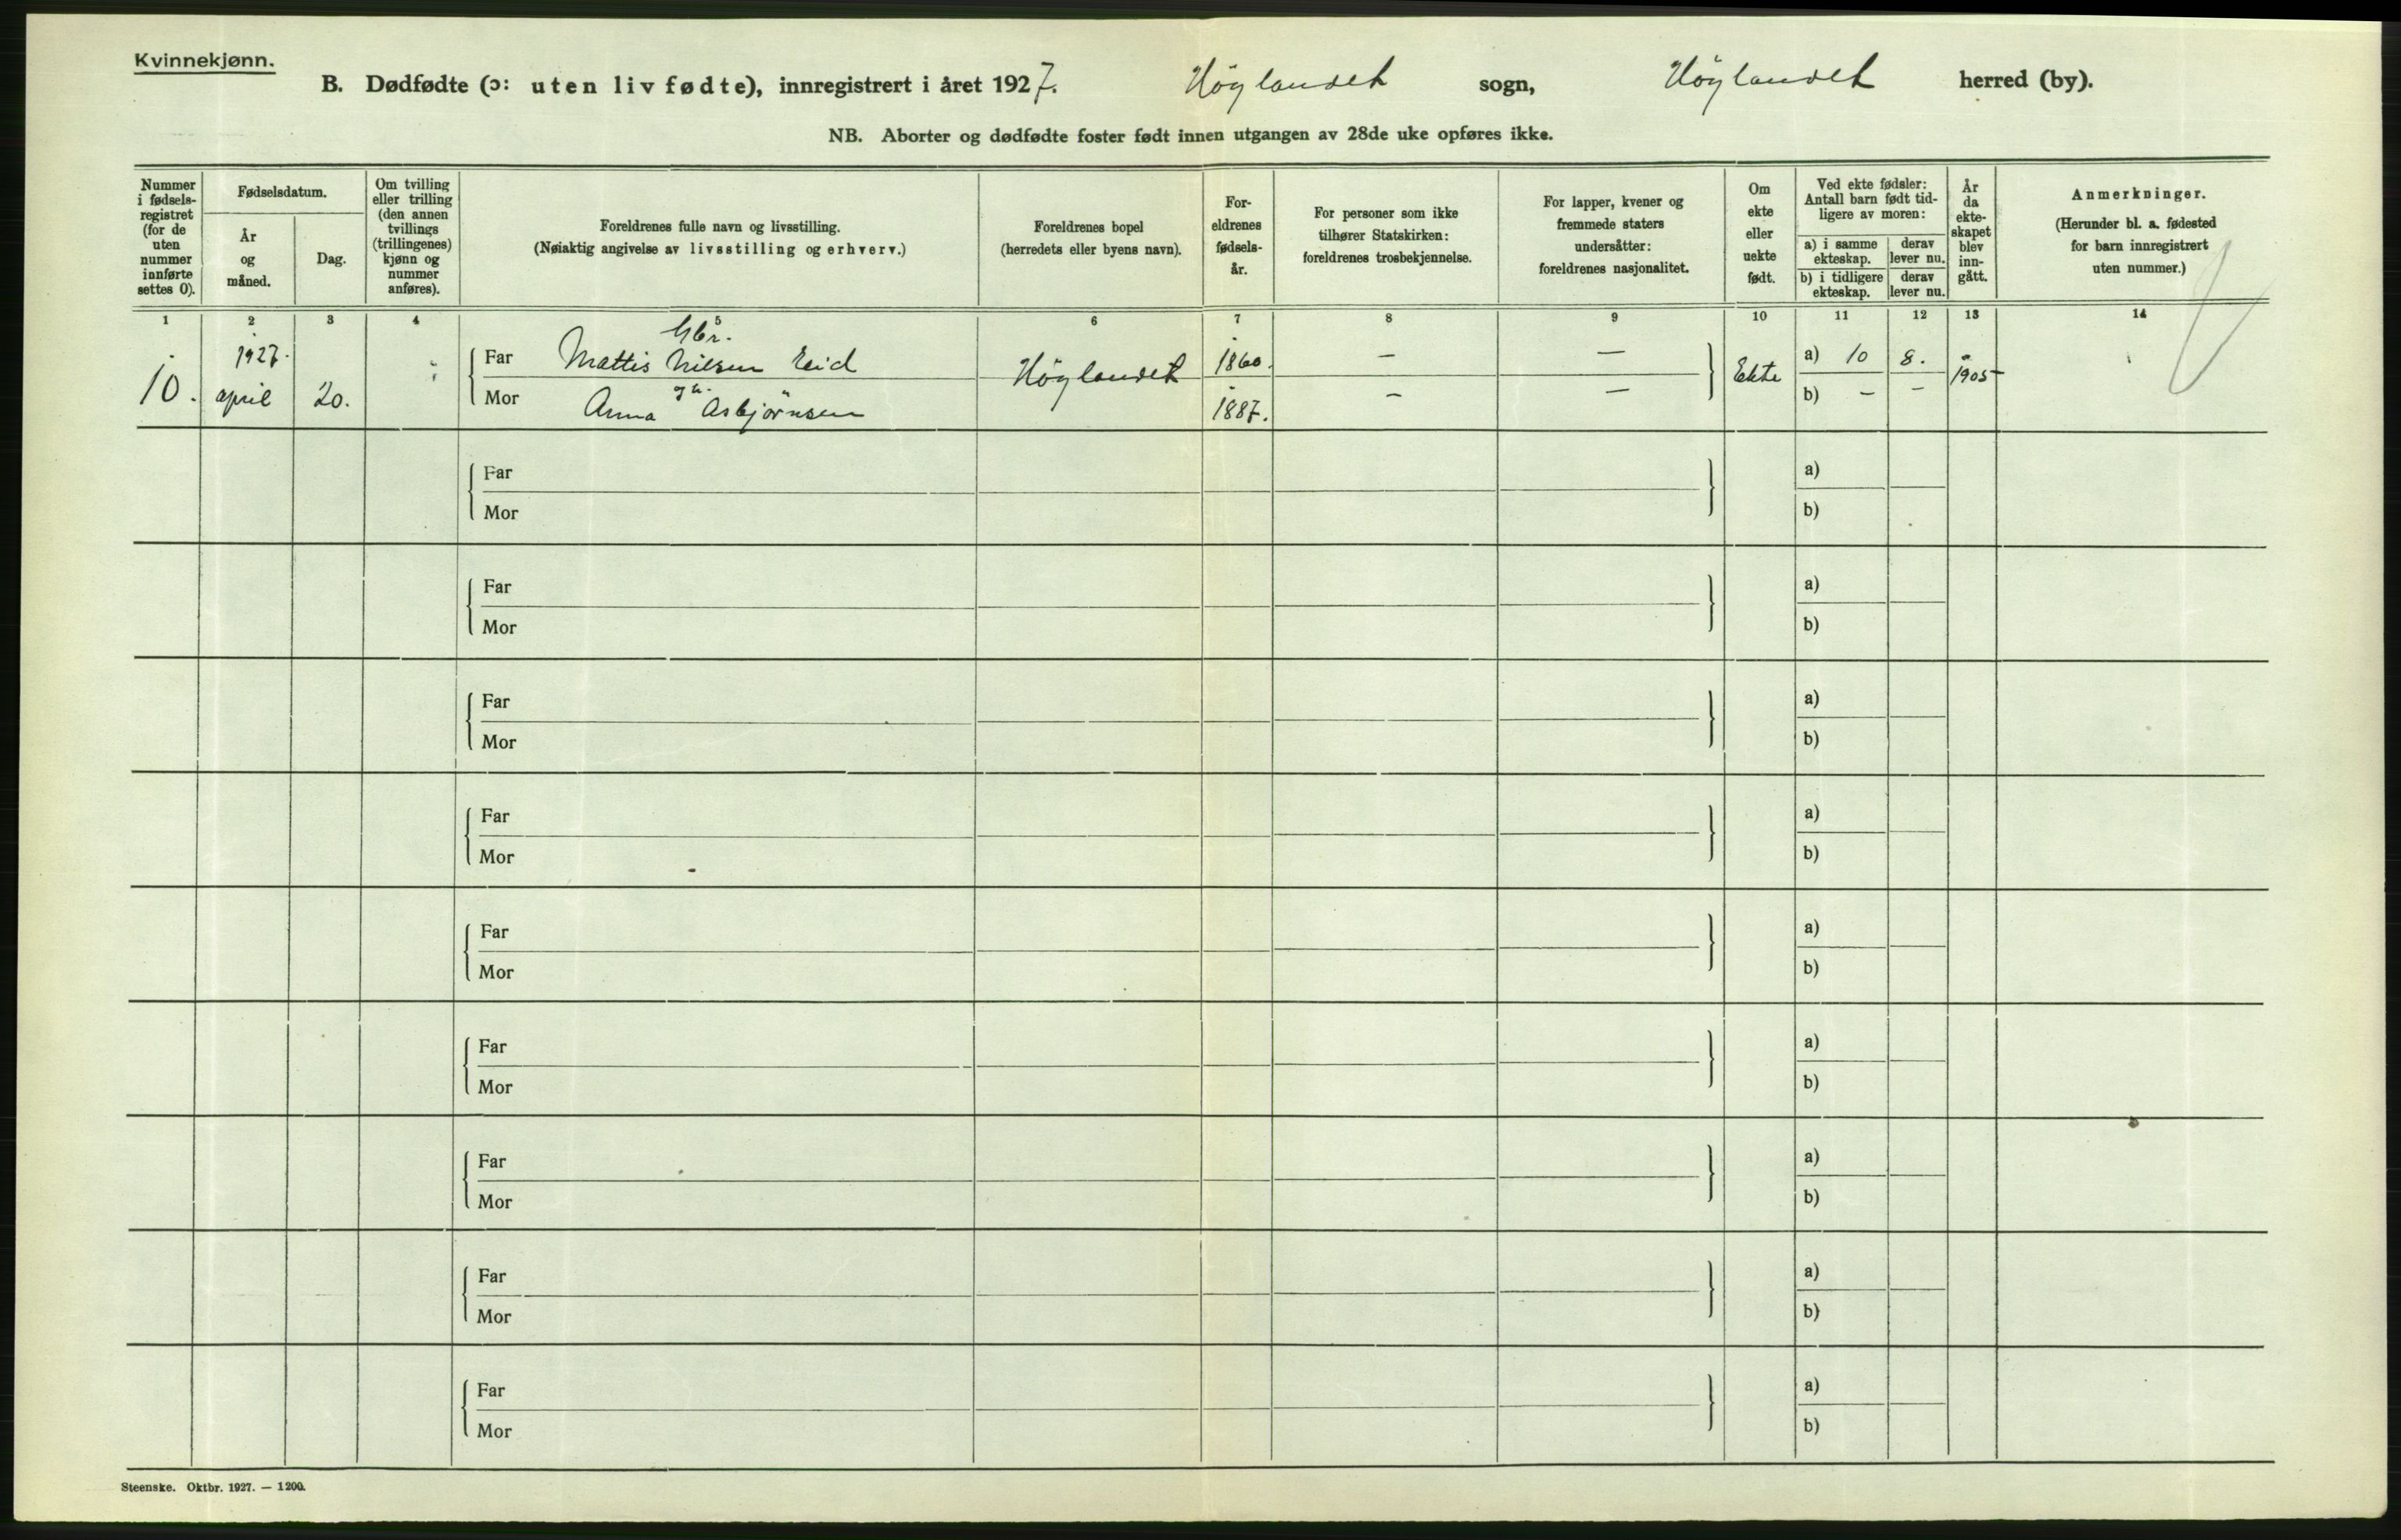 Kvinnekjønn.
B. Dødfødte (ɔ: uten liv fødte), innregistrert i året 1927. Höylandet sogn, Höylandet herred (by).
NB. Aborter og dødfødte foster født innen utgangen av 28de uke opføres ikke.
Nummer i fødsels-registret (for de uten nummer innførte settes 0).
Fødselsdatum.
År og måned.
Dag.
Om tvilling eller trilling (den annen tvillings (trillingenes) kjønn og nummer anføres).
Foreldrenes fulle navn og livsstilling.
(Nøiaktig angivelse av livsstilling og erhverv.)
Foreldrenes bopel
(herredets eller byens navn).
For-eldrenes fødsels-år.
For personer som ikke tilhører Statskirken: foreldrenes trosbekjennelse.
For lapper, kvener og fremmede staters undersåtter: foreldrenes nasjonalitet.
Om ekte eller uekte født.
Ved ekte fødsler: Antall barn født tid-ligere av moren:
a) i samme ekteskap.
derav lever nu.
b) i tidligere ekteskap.
derav lever nu.
År da ekte-skapet blev inn-gått.
Anmerkninger.
(Herunder bl. a. fødested for barn innregistrert uten nummer.)
1 2 3 4 5 6 7 8 9 10 11 12 13 14
Gbr.
10. 1927. april 20. Far Mattis Nilsen Eid Höylandet 1860. — — Ekte a) 10 8. 1905
Mor Anna Asbjörnsen 1887. — — b) — —
Far a)
Mor b)
Far a)
Mor b)
Far a)
Mor b)
Far a)
Mor b)
Far a)
Mor b)
Far a)
Mor b)
Far a)
Mor b)
Far a)
Mor b)
Far a)
Mor b)
Steenske. Oktbr. 1927. — 1200.